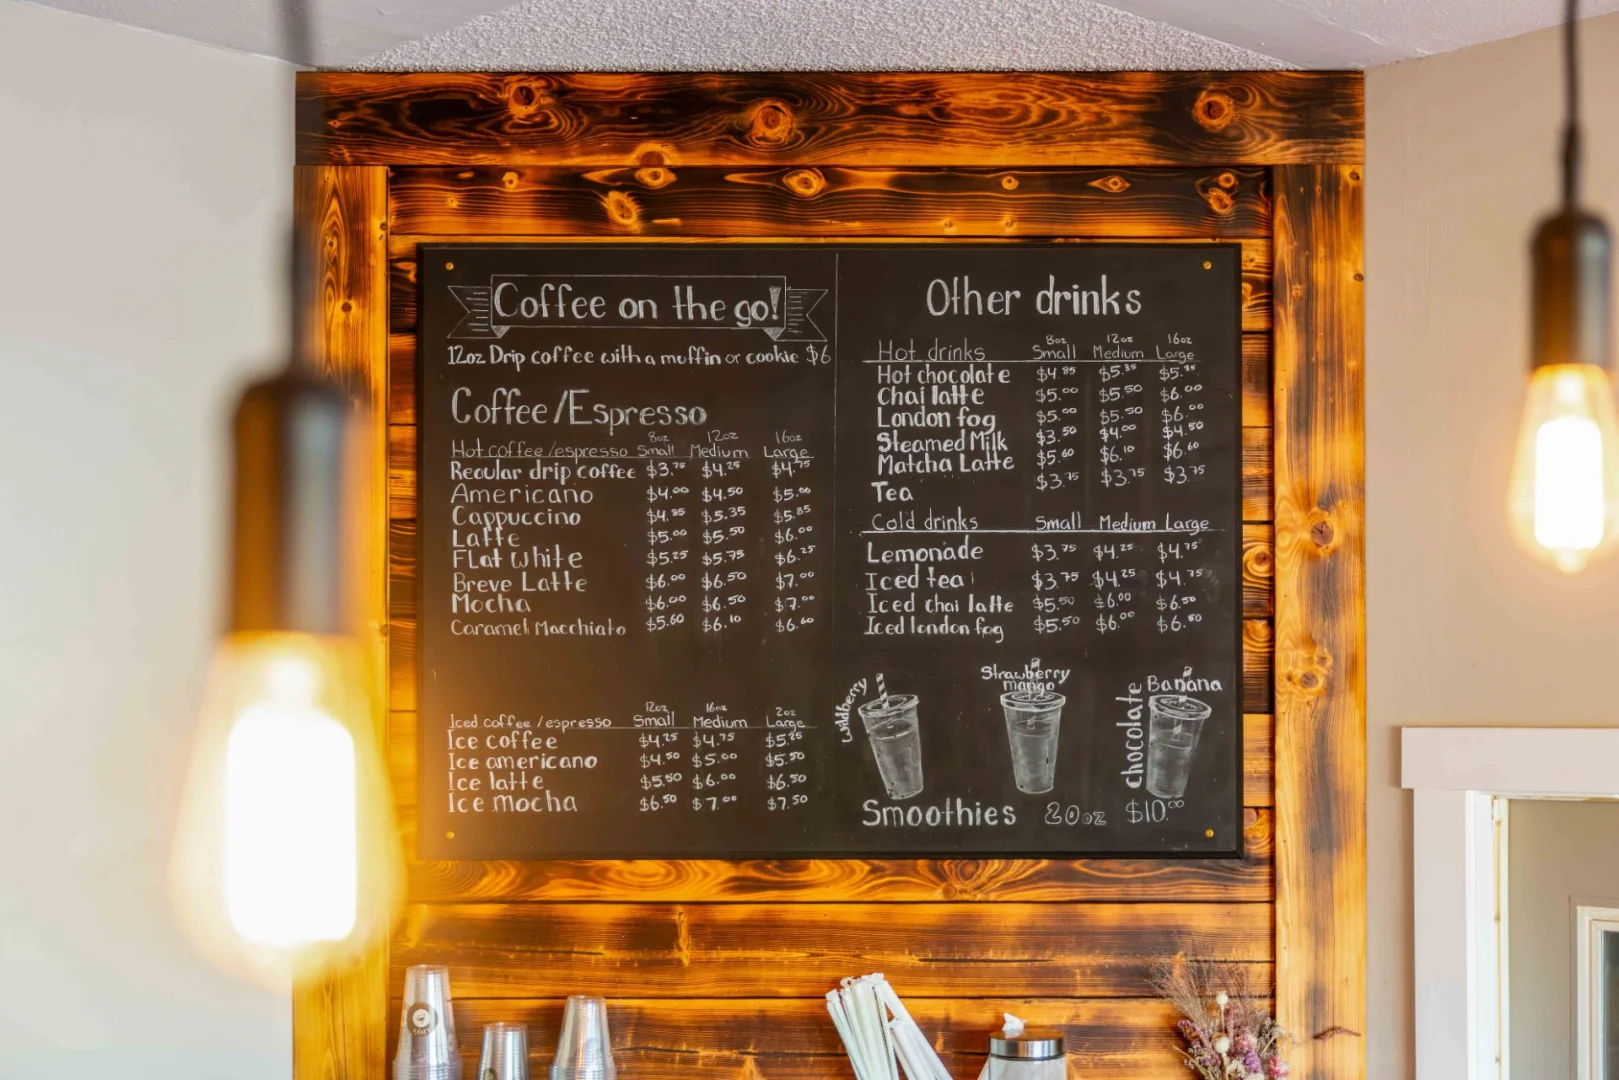 Coffee on the go!
12oz Drip coffee with a muffin or cookie $6
Coffee/Espresso
8oz 12oz 16oz
Hot coffee/espresso Small Medium Large
Regular drip coffee $3.75 $4.25 $4.75
Americano $4.00 $4.50 $5.00
Cappuccino $4.85 $5.35 $5.85
Latte $5.00 $5.50 $6.00
Flat white $5.25 $5.75 $6.25
Breve Latte $6.00 $6.50 $7.00
Mocha $6.00 $6.50 $7.00
Caramel Macchiato $5.60 $6.10 $6.60
12oz 16oz 2oz
Iced coffee/espresso Small Medium Large
Ice coffee $4.25 $4.75 $5.25
Ice americano $4.50 $5.00 $5.50
Ice latte $5.50 $6.00 $6.50
Ice mocha $6.50 $7.00 $7.50
Other drinks
8oz 12oz 16oz
Hot drinks Small Medium Large
Hot chocolate $4.85 $5.35 $5.85
Chai latte $5.00 $5.50 $6.00
London fog $5.00 $5.50 $6.00
Steamed Milk $3.50 $4.00 $4.50
Matcha Latte $5.60 $6.10 $6.60
Tea $3.75 $3.75 $3.75
Cold drinks Small Medium Large
Lemonade $3.75 $4.25 $4.75
Iced tea $3.75 $4.25 $4.75
Iced chai latte $5.50 $6.00 $6.50
Iced london fog $5.50 $6.00 $6.50
Wildberry
Strawberry
mango
chocolate
Banana
Smoothies 20oz $10.00